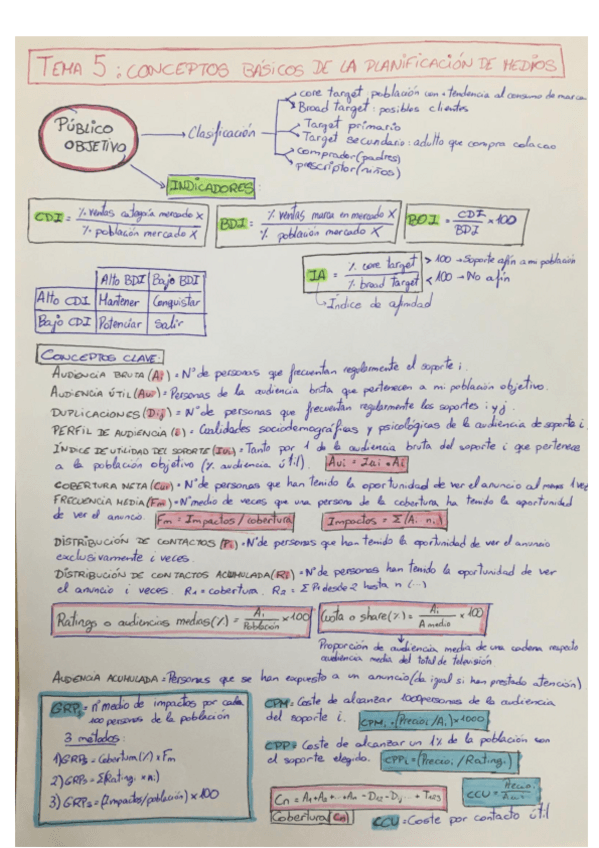 TEMA 5: CONCEPTOS BÁSICOS DE LA PLANIFICACIÓN DE MEDIOS
PÚBLICO OBJETIVO
Clasificación
core target: población con + tendencia al consumo de marca
Broad target: posibles clientes
Target primario
Target secundario: adulto que compra colacao
comprador (padres)
prescriptor (niños)
INDICADORES:
CDI = % ventas categoría mercado X / % población mercado X
BDI = % ventas marca en mercado X / % población mercado X
BOI = CDI / BDI × 100
IA = % core target / % broad target
> 100 → Soporte afín a mi población
< 100 → No afín
Índice de afinidad
Alto BDI Bajo BDI
Alto CDI Mantener Conquistar
Bajo CDI Potenciar Salir
CONCEPTOS CLAVE:
AUDIENCIA BRUTA (Ai) = Nº de personas que frecuentan regularmente el soporte i.
AUDIENCIA ÚTIL (Aui) = Personas de la audiencia bruta que pertenecen a mi población objetivo.
DUPLICACIONES (Dij) = Nº de personas que frecuentan regularmente los soportes i y j.
PERFIL DE AUDIENCIA (i) = Cualidades sociodemográficas y psicológicas de la audiencia de soporte i
ÍNDICE DE UTILIDAD DEL SOPORTE (Iai) = Tanto por 1 de la audiencia bruta del soporte i que pertenece
a la población objetivo (% audiencia útil). Aui = Iai • Ai
COBERTURA NETA (Cn) = Nº de personas que han tenido la oportunidad de ver el anuncio al menos 1 vez
FRECUENCIA MEDIA (Fm) = Nº medio de veces que una persona de la cobertura ha tenido la oportunidad
de ver el anuncio. Fm = Impactos / cobertura Impactos = Σ(Ai ni)
DISTRIBUCIÓN DE CONTACTOS (Pi) = Nº de personas que han tenido la oportunidad de ver el anuncio
exclusivamente i veces.
DISTRIBUCIÓN DE CONTACTOS ACUMULADA (Ri) = Nº de personas han tenido la oportunidad de ver
el anuncio i veces. R1 = cobertura. R2 = ΣPi desde 2 hasta n (...)
Ratings o audiencias medias (%) = Ai / Población × 100
Cuota o share (%) = Ai / A medio × 100
Proporción de audiencia media de una cadena respecto
audiencia media del total de televisión
AUDIENCIA ACUMULADA = Personas que se han expuesto a un anuncio (da igual si han prestado atención)
GRPs = nº medio de impactos por cada
100 personas de la población
3 métodos:
1) GRPs = Cobertura (%) x Fm
2) GRPs = Σ(Ratingi × ni)
3) GRPs = (Impactos/población) × 100
CPM = Coste de alcanzar 1000 personas de la audiencia
del soporte i. CPMi = (Precioi / Ai) × 1000
CPP = Coste de alcanzar un 1% de la población con
el soporte elegido. CPPi = (Precioi / Ratingi)
Cn = A1 + A2 + ... + An - D12 - Dij ... + T123
Cobertura Cn
CCU =
CCU = Coste por contacto útil